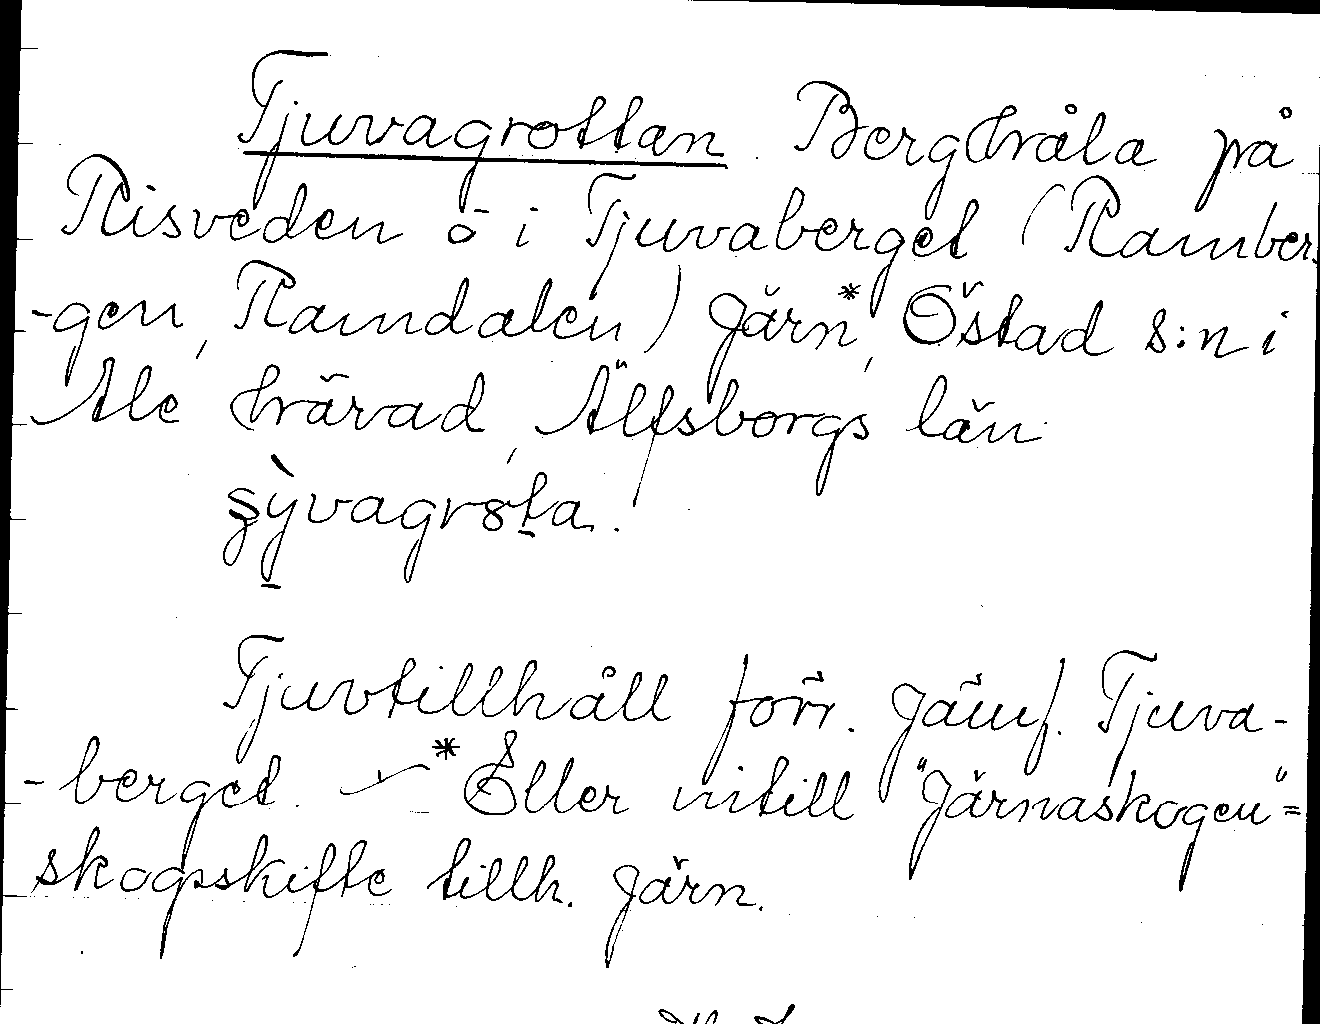 Tjuvagrottan Berghåla på
Risveden ö i Tjuvaberget (Ramber-
-gen, Ramdalen) Järn*, Östad s:n i
Ale härad, Älfsborgs län
Tjuvtillhåll förr. Jämf. Tjuva-
-berget. *Eller intill "Järnaskogen"=
skogsskifte tillh. Järn.